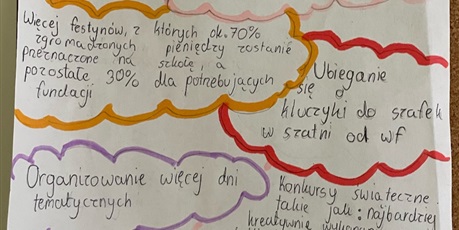 Więcej festynów, z których ok. 70%
zgromadzonych pieniędzy zostanie
preznaczone na szkołę, a
pozostałe 30% dla potrebujących
fundacji
Ubieganie
się o
kluczyki do szafek
w szatni od wf
Organizowanie więcej dni
tematycznych
Konkursy świąteczne
takie jak: najbardziej
kreatywnie